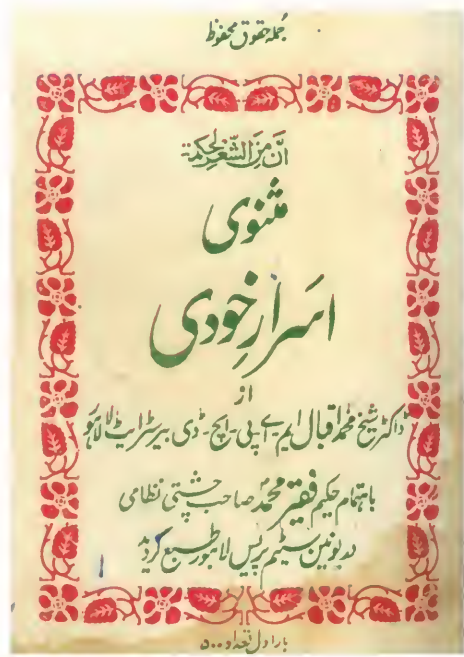 جملہ حقوق محفوظ
انّ مِنَ الشّعرِ لحکمۃ
مثنوی
اسرارِ خودی
از
ڈاکٹر شیخ محمد اقبال ایم-اے پی-ایچ-ڈی بیرسٹر ایٹ لا لاہور
باہتمام حکیم فقیر محمدؐ صاحب چشتی نظامی
در یونین سٹیم پریس لاہور طبع گردید
بار اول تعداد ۵۰۰